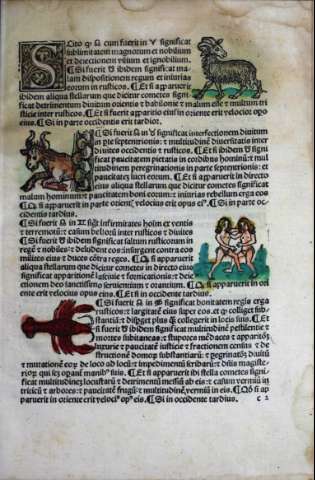 Scito qͥ ☊ cum fuerit in ♈ significat
sublimitatem magnorum et nobilium
et deiectionem vilium et ignobilium.
¶ Si fuerit ☋ ibidem significat ma-
lam dispositionem regum et iniurias
eorum in rusticos. ¶ Et si apparuerit
ibidem aliqua stellarum que dicitur cometes signi-
ficat detrimentum diuitum orientis et babilonie et malum esse et multum tri
sticie inter rusticos. ¶ Et si fuerit apparitio eius in oriente erit velocior opo
eius. ¶ Si in parte occidentis erit tardior.
¶ Si fuerit ☊ in ♉ significat interfectionem diuitum
in pte septemtrionis: et multitudinē diuersitatis inter
diuites occidentis et rusticos. ¶ Et si ibidem ☋ signi
ficat paucitatem pietatis in cordibus hominū: et mul
titudinem peregrinationis in parte septemtrionis: et
paucitatem lucri eorum. ¶ Et si apparuerit in directo
eius aliqua stellarum que dicitur cometes significat
malum hominum: et paucitatem boni eorum: et iniurias rebellium erga eos
¶ Qͦ si apparuerit in parte orientis velocius erit opus ei⁹. ¶ Si in parte oc-
cidentis tardius.
¶ Si fuerit ☊ in ♊ significat infirmitates hoīm et ventis
et terremotū: et casum bellorū inter rusticos et diuites
¶ Si fuerit ☋ ibidem significat saltum rusticorum in
reges et nobiles: et deludent eos: insurgent contra eos
multos eius et duces cōtra reges. ¶ Et si apparuerit
aliqua stellarum que dicitur cometes in directo eius
significat apparitionē lasciuie et fornicationis: et deie-
ctionem deo sanctissimo seruientium et orantium. ¶ Qͦ si apparuerit in ori
ente erit velocius opus eius. ¶ Et si in occidente tardius.
¶ Si fuerit ☊ in ♋ significat bonitatem regis erga
rusticos: et largitatē eius super eos. et ꝙ colliget sub-
stantiā: et disperget plus qͣ̄ collegerit in locis suis. ¶ Et
si fuerit ☋ ibidem significat multitudinē pestilentie et
mortes subitaneas: et stupores mēdaces et apparitōes
luxurie et paucitatē iusticie et fractionem census: et de
structionē domorum substantiarū: et pegrinatōes diuitū
et mutationē eorum de loco ad locū: et impedimentū scribarū: et
qui sequuntur manibus suis. ¶ Et si apparuerit ibi stella cometes signi-
ficat multitudinē locustarū et detrimentū messiū ab eis: et casum vermiū in
triticū et arbores: et paucitatē frugū: et multitudinē vermiū in eis. Qͦ si ap
paruerit in oriente erit velocius opus eius. ¶ Si in occidente tardius. c 2